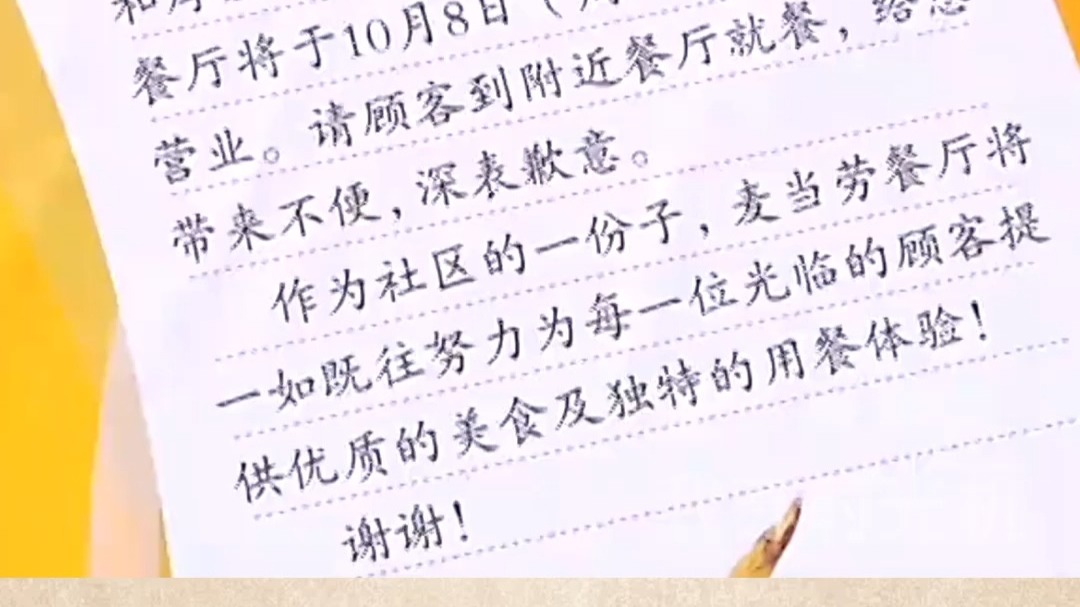 餐厅将于10月8日（周
营业。请顾客到附近餐厅就餐，给您
带来不便，深表歉意。
作为社区的一份子，麦当劳餐厅将
一如既往努力为每一位光临的顾客提
供优质的美食及独特的用餐体验！
谢谢！